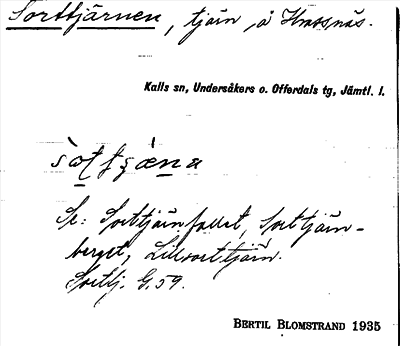 Sorttjärnen, tjärn å Hvassnäs.
Kalls sn, Undersåkers o. Offerdals tg, Jämtl. l.
Se: Sorttjärnfallet, Sorttjärn-
berget, Lillsorttjärn.
Sorttj. G.59.
BERTIL BLOMSTRAND 1935